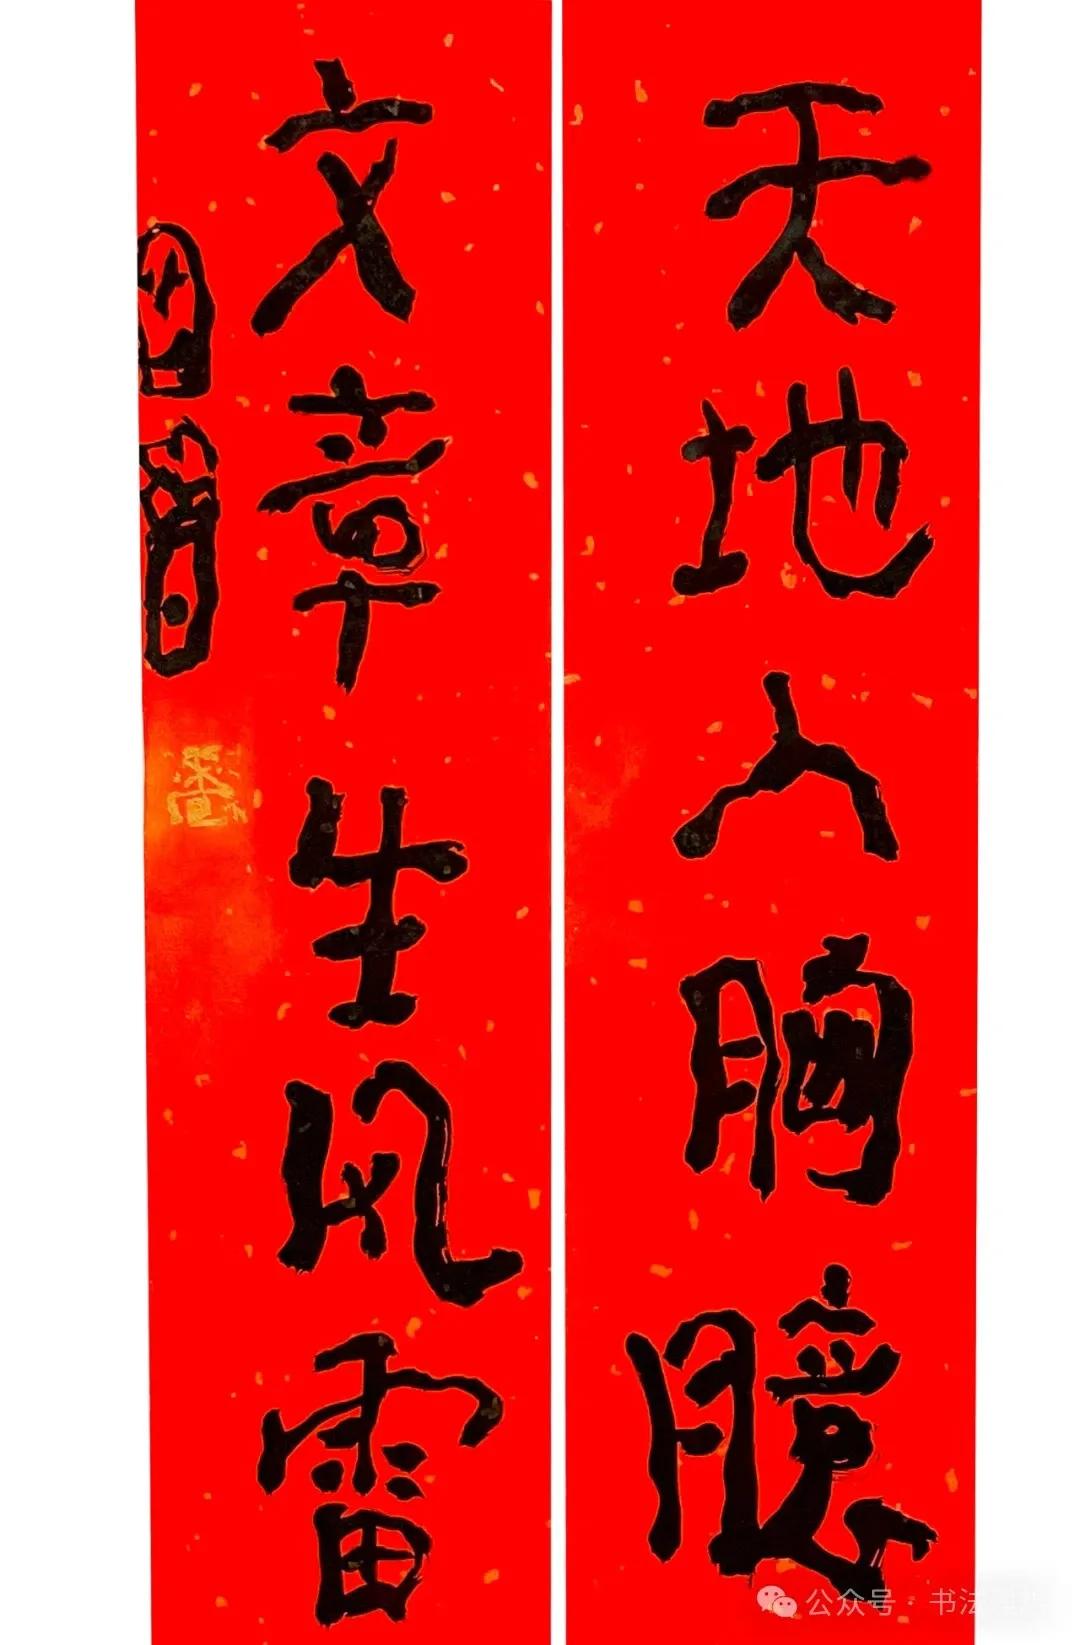 天地入胸臆
文章生风雷
公众号·书法